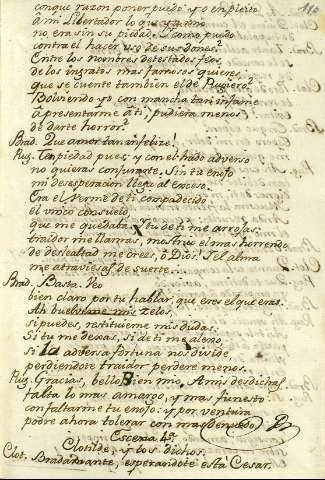 110
conque razon poner puedo yo en pleito
à mi Libertador lo que
no era sin su piedad? Y como puedo
contra el hacer uso de sus dones?
Entre los nombres detestados, feos,
de los ingratos mas famosos quieres
que se cuente tambien el de Rugiero?
Bolviendo yo con mancha tan infame
a presentarme à ti, pudiera menos
de darte horror?
Brad. Que amor tan infeliz!
Rug. Ten piedad pues, y con el hado adverso
no quieras conjurarte. Sin tu enojo
mi desesperacion llega al exceso.
Era el verme de ti compadecido
el unico consuelo
que me quedaba. Y tu de ti me arrojas,
traidor me llamas, mostruo el mas horrendo
de deslealtad me crees, ò Dios! Y el alma
me atraviesas de suerte...
Brad. Basta. Veo
bien claro por tu hablar, que eres el que eras.
Ah buelvanme mis zelos,
si puedes, restitueme mis dudas.
Si tu me dexas, si de ti me alexo,
si la adversa fortuna nos divide,
perdiendote traidor perdere menos.
Rug. Gracias, bello Bien mio, A mis desdichas
falta lo mas amargo, y mas funesto
con faltarme tu enojo: y por ventura
podre ahora tolerar con mas denuedo)
Escena 4ª
Clotilde, y los dichos.
Clot. Bradamante, esperandote està Cesar.